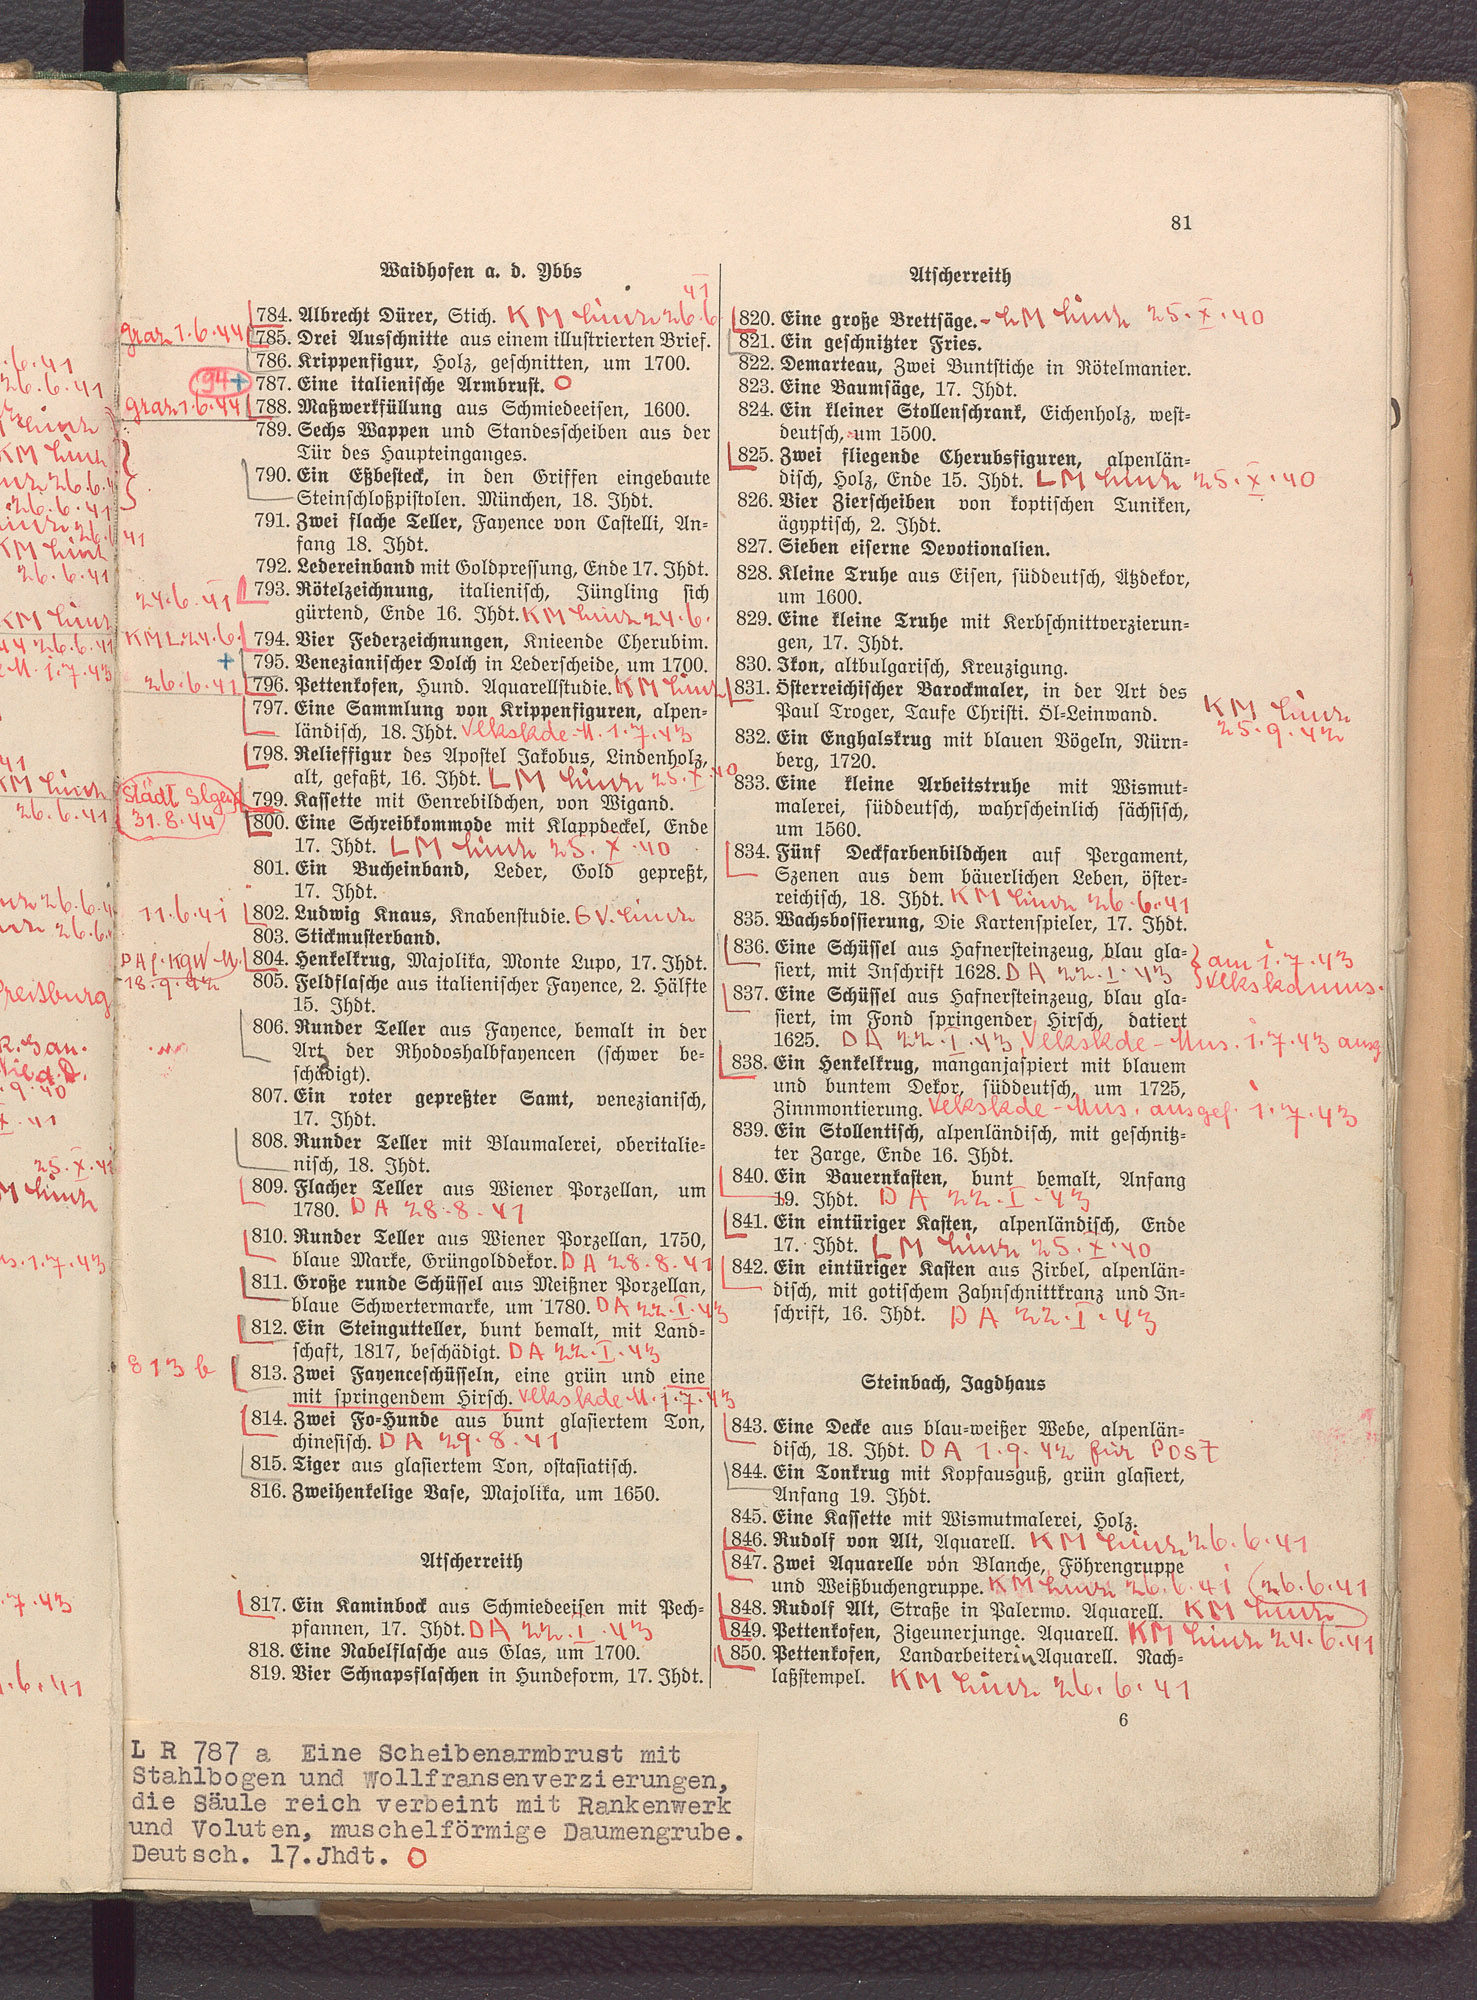 81
Waidhofen a. d. Ybbs
41
784. Albrecht Dürer, Stich. KM Linz 26.6
Graz 1.6.44 785. Drei Ausschnitte aus einem illustrierten Brief.
786. Krippenfigur, Holz, geschnitten, um 1700.
94+ 787. Eine italienische Armbrust. O
Graz 1.6.44 788. Maßwerkfüllung aus Schmiedeeisen, 1600.
789. Sechs Wappen und Standesscheiben aus der
Tür des Haupteinganges.
790. Ein Eßbesteck, in den Griffen eingebaute
Steinschloßpistolen. München, 18. Jhdt.
791. Zwei flache Teller, Fayence von Castelli, An-
fang 18. Jhdt.
792. Ledereinband mit Goldpressung, Ende 17. Jhdt.
24.6.41 793. Rötelzeichnung, italienisch, Jüngling sich
gürtend, Ende 16. Jhdt. KM Linz 24.6.
KM L. 24.6. 794. Vier Federzeichnungen, Knieende Cherubim.
+ 795. Venezianischer Dolch in Lederscheide, um 1700.
26.6.41 796. Pettenkofen, Hund. Aquarellstudie. KM Linz
797. Eine Sammlung von Krippenfiguren, alpen-
ländisch, 18. Jhdt. Volkskde-M. 1.7.43
798. Relieffigur des Apostel Jakobus, Lindenholz,
alt, gefaßt, 16. Jhdt. LM Linz 25.X.40
Städt Slgen 799. Kassette mit Genrebildchen, von Wigand.
31.8.44 800. Eine Schreibkommode mit Klappdeckel, Ende
17. Jhdt. LM Linz 25.X.40
801. Ein Bucheinband, Leder, Gold gepreßt,
17. Jhdt.
11.6.41 802. Ludwig Knaus, Knabenstudie. GV. Linz
803. Stickmusterband.
804. Henkelkrug, Majolika, Monte Lupo, 17. Jhdt.
18.9.42 805. Feldflasche aus italienischer Fayence, 2. Hälfte
15. Jhdt.
806. Runder Teller aus Fayence, bemalt in der
Art der Rhodoshalbfayencen (schwer be-
schädigt).
807. Ein roter gepreßter Samt, venezianisch,
17. Jhdt.
808. Runder Teller mit Blaumalerei, oberitalie-
nisch, 18. Jhdt.
809. Flacher Teller aus Wiener Porzellan, um
1780. DA 28.8.41
810. Runder Teller aus Wiener Porzellan, 1750,
blaue Marke, Grüngolddekor. DA 28.8.41
811. Große runde Schüssel aus Meißner Porzellan,
blaue Schwertermarke, um 1780. DA 22.I.43
812. Ein Steingutteller, bunt bemalt, mit Land-
schaft, 1817, beschädigt. DA 22.I.43
813 b 813. Zwei Fayenceschüsseln, eine grün und eine
mit springendem Hirsch. Volkskde M. 1.7.43
814. Zwei Fo-Hunde aus bunt glasiertem Ton,
chinesisch. DA 29.8.41
815. Tiger aus glasiertem Ton, ostasiatisch.
816. Zweihenkelige Vase, Majolika, um 1650.
Atscherreith
817. Ein Kaminbock aus Schmiedeeisen mit Pech-
pfannen, 17. Jhdt. DA 22.I.43
818. Eine Nabelflasche aus Glas, um 1700.
819. Vier Schnapsflaschen in Hundeform, 17. Jhdt.
Atscherreith
820. Eine große Brettsäge. - LM Linz 25.X.40
821. Ein geschnitzter Fries.
822. Demarteau, Zwei Buntstiche in Rötelmanier.
823. Eine Baumsäge, 17. Jhdt.
824. Ein kleiner Stollenschrank, Eichenholz, west-
deutsch, um 1500.
825. Zwei fliegende Cherubsfiguren, alpenlän-
disch, Holz, Ende 15. Jhdt. LM Linz 25.X.40
826. Vier Zierscheiben von koptischen Tuniken,
ägyptisch, 2. Jhdt.
827. Sieben eiserne Devotionalien.
828. Kleine Truhe aus Eisen, süddeutsch, Ätzdekor,
um 1600.
829. Eine kleine Truhe mit Kerbschnittverzierun-
gen, 17. Jhdt.
830. Ikon, altbulgarisch, Kreuzigung.
831. Österreichischer Barockmaler, in der Art des
Paul Troger, Taufe Christi. Öl-Leinwand. KM Linz
25.9.42
832. Ein Enghalskrug mit blauen Vögeln, Nürn-
berg, 1720.
833. Eine kleine Arbeitstruhe mit Wismut-
malerei, süddeutsch, wahrscheinlich sächsisch,
um 1560.
834. Fünf Deckfarbenbildchen auf Pergament,
Szenen aus dem bäuerlichen Leben, öster-
reichisch, 18. Jhdt. KM Linz 26.6.41
835. Wachsbossierung, Die Kartenspieler, 17. Jhdt.
836. Eine Schüssel aus Hafnersteinzeug, blau gla-
siert, mit Inschrift 1628. DA 22.I.43 } am 1.7.43
Volkskdmus.
837. Eine Schüssel aus Hafnersteinzeug, blau gla-
siert, im Fond springender Hirsch, datiert
1625. DA 22.I.43 Volkskde-Mus. 1.7.43 ausg
838. Ein Henkelkrug, manganjaspiert mit blauem
und buntem Dekor, süddeutsch, um 1725,
Zinnmontierung. Volkskde-Mus. ausgef. 1.7.43
839. Ein Stollentisch, alpenländisch, mit geschnitz-
ter Zarge, Ende 16. Jhdt.
840. Ein Bauernkasten, bunt bemalt, Anfang
19. Jhdt. DA 22.I.43
841. Ein eintüriger Kasten, alpenländisch, Ende
17. Jhdt. LM Linz 25.X.40
842. Ein eintüriger Kasten aus Zirbel, alpenlän-
disch, mit gotischem Zahnschnittkranz und In-
schrift, 16. Jhdt. DA 22.I.43
Steinbach, Jagdhaus
843. Eine Decke aus blau-weißer Webe, alpenlän-
disch, 18. Jhdt. DA 1.9.42 für POST
844. Ein Tonkrug mit Kopfausguß, grün glasiert,
Anfang 19. Jhdt.
845. Eine Kassette mit Wismutmalerei, Holz.
846. Rudolf von Alt, Aquarell. KM Linz 26.6.41
847. Zwei Aquarelle von Blanche, Föhrengruppe
und Weißbuchengruppe. KM Linz 26.6.41 (26.6.41
848. Rudolf Alt, Straße in Palermo. Aquarell. KM Linz
849. Pettenkofen, Zigeunerjunge. Aquarell. KM Linz 24.6.41
850. Pettenkofen, Landarbeiterin Aquarell. Nach-
laßstempel. KM Linz 26.6.41
6
L R 787 a Eine Scheibenarmbrust mit
Stahlbogen und Wollfransenverzierungen,
die Säule reich verbeint mit Rankenwerk
und Voluten, muschelförmige Daumengrube.
Deutsch. 17.Jhdt. O